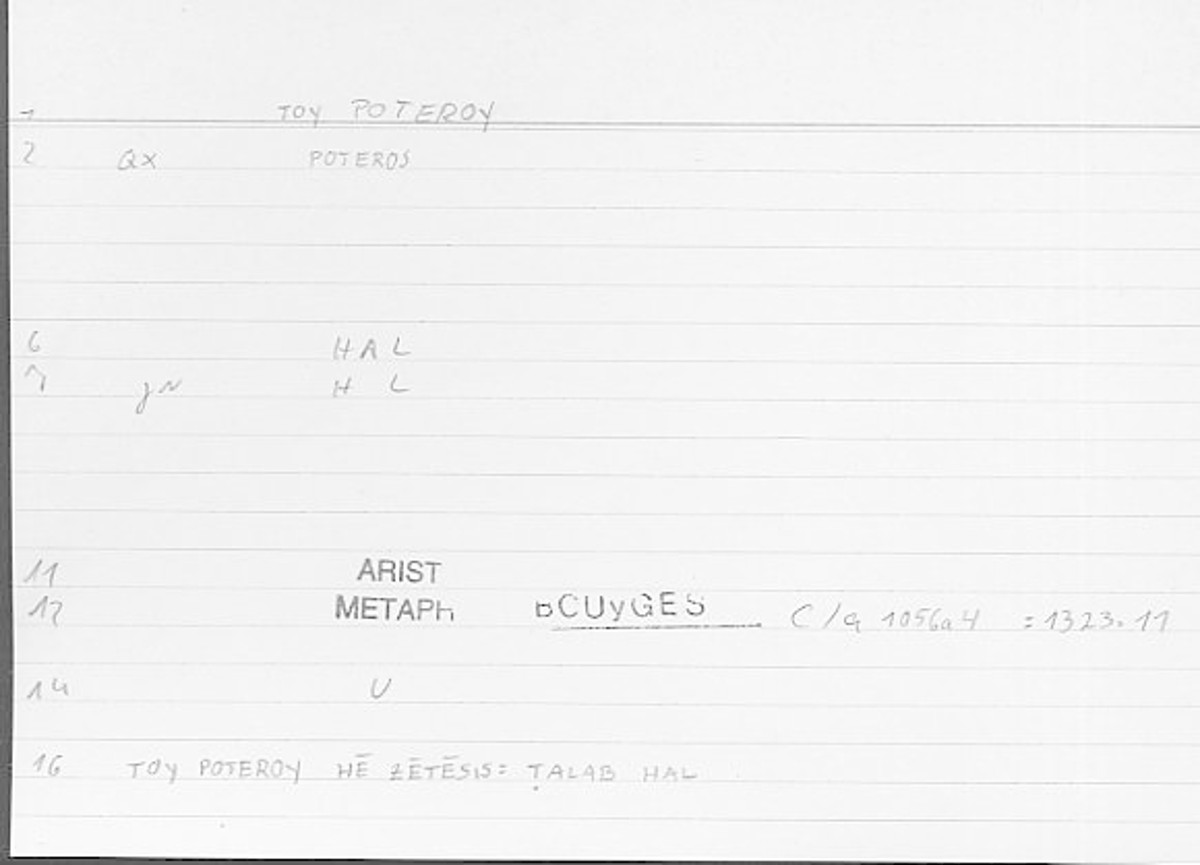 1 TOY POTEROY
2 QX POTEROS
6 HAL
7 JN H L
11 ARIST
12 METAPh BCUyGES C/q 1056a4 =1323.11
14 U
16 TOY POTEROY HĒ ZĒTĒSIS: ṬALAB HAL